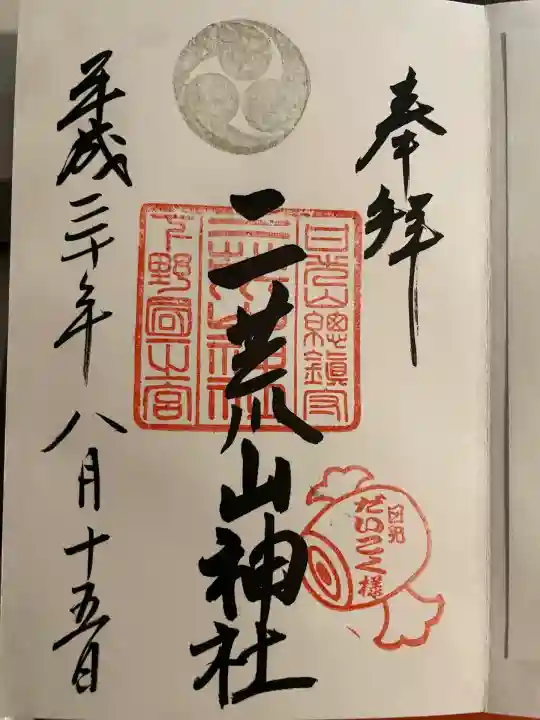 奉拝
日光山總鎮守
二荒山神社
下野國一宮
二荒山神社
日光
だいこく様
平成二十年八月十五日